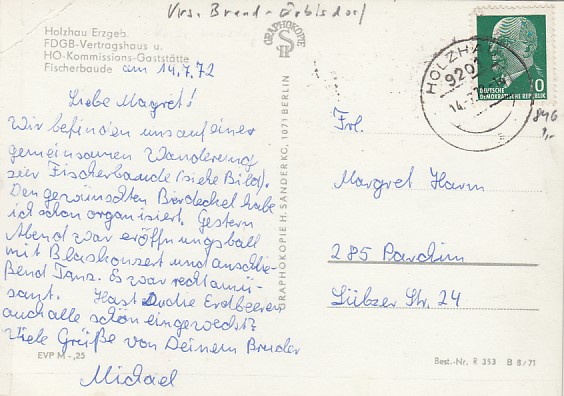 Vrs. Brand-Erbisdorf
Holzhau Erzgeb.
FDGB-Vertragshaus u.
HO-Kommissions-Gaststätte
Fischerbaude am 14.7.72
Liebe Magret!
Wir befinden uns auf einer
gemeinsamen Wanderung
zur Fischerbaude (siehe Bild).
Den gewünschten Bierdeckel habe
ich schon organisiert. Gestern
Abend war eröffnungsball
mit Blaskonzert und anschlie-
ßend Tanz. Es war recht amü-
sant. Hast Du die Erdbeeren
auch alle schön eingeweckt?
Viele Grüße von Deinem Bruder
Michael
EVP M -,25
GRAPHOKOPIE
GRAPHOKOPIE H. SANDER KG, 1071 BERLIN
HOLZHAU
9201
14.7.
10
DEUTSCHE
DEMOKRATISCHE REPUBLIK
846
1,-
Frl.
Margret Harm
285 Parchim
Lübzer Str. 24
Best.-Nr. R 353 B 8/71